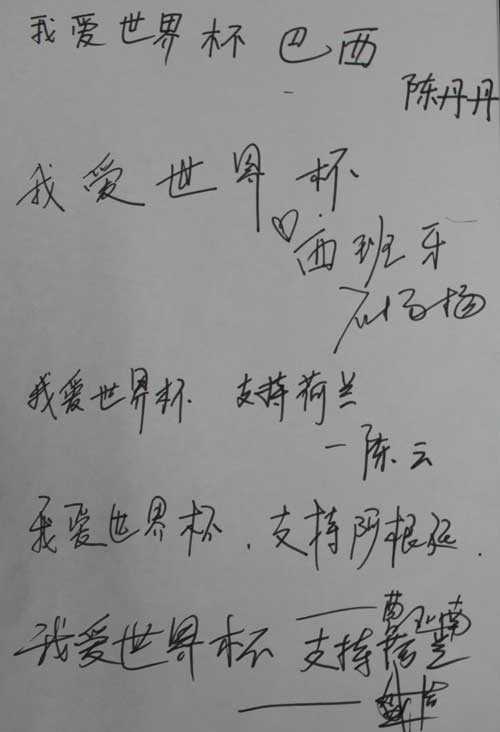 我爱世界杯 巴西
陈丹丹
我爱世界杯
西班牙
我爱世界杯 支持荷兰
一陈云
我爱世界杯.支持阿根廷.
我爱世界杯 支持荷兰